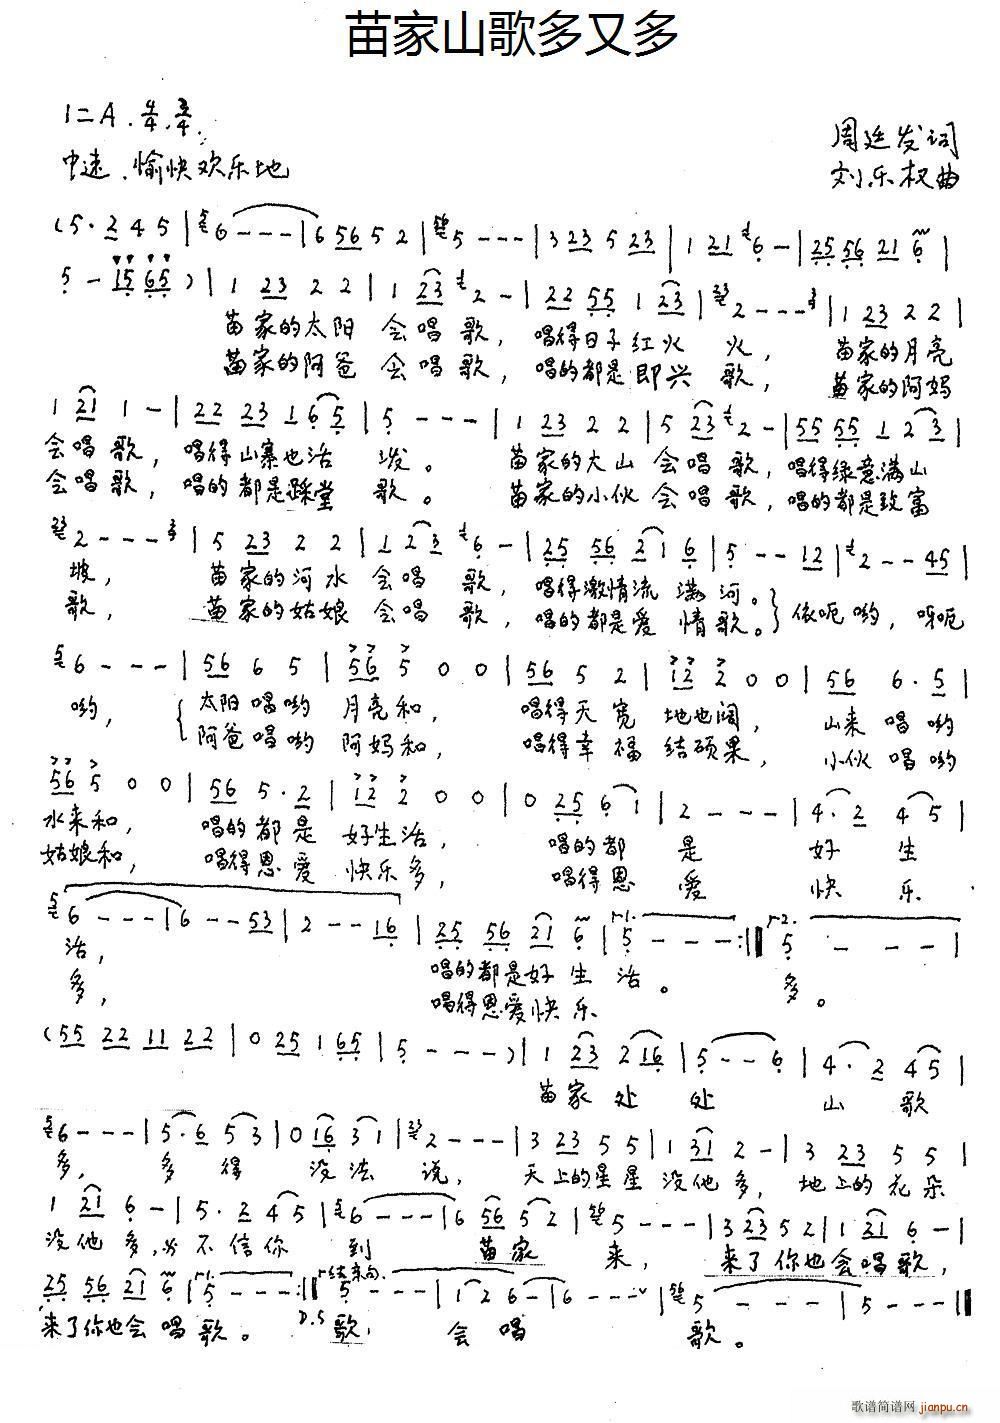 苗家山歌多又多
1=A 4/4 3/4
中速、愉快欢乐地
周廷发词
刘乐权曲
(5·2 4 5 | 6 - - - | 6 56 5 2 | 5 - - - | 3 23 5 23 | 1 21 6 - | 25 56 21 6 |
5 - 15 65 ) | 1 23 2 2 | 1 23 2 - | 22 55 1 23 | 2 - - - | 1 23 2 2 |
苗家的太阳 会唱歌, 唱得日子红火 火, 苗家的月亮
苗家的阿爸 会唱歌, 唱的都是即兴 歌, 苗家的阿妈
1 21 1 - | 22 23 1 65 | 5 - - - | 1 23 2 2 | 5 23 2 - | 55 55 1 23 |
会唱歌, 唱得山寨也活 泼。 苗家的大山 会唱歌, 唱得绿意满山
会唱歌, 唱的都是踩堂 歌。 苗家的小伙 会唱歌, 唱的都是致富
2 - - - | 5 23 2 2 | 1 23 6 - | 25 56 21 6 | 5 - - 12 | 2 - - 45 |
坡, 苗家的河水 会唱 歌, 唱得激情流 满河。
歌, 苗家的姑娘 会唱 歌, 唱的都是爱 情歌。} 依呃哟, 呀呃
6 - - - | 56 6 5 | 56 5 0 0 | 56 5 2 | 12 2 0 0 | 56 6·5 |
哟, 太阳唱哟 月亮和, 唱得天宽 地也阔, 山来唱哟
阿爸唱哟 阿妈和, 唱得幸福 结硕果, 小伙唱哟
56 5 0 0 | 56 5·2 | 12 2 0 0 | 0 25 6 1 | 2 - - - | 4·2 4 5 |
水来和, 唱的都是 好生活, 唱的都 是 好 生
姑娘和, 唱得恩爱 快乐多, 唱得恩 爱 快 乐
6 - - - | 6 - - 53 | 2 - - 16 | 25 56 21 6 | 1. 5 - - - :| 2. 5 - - - |
活, 唱的都是好 生 活。 多。
多, 唱得恩爱快乐
(55 22 11 22 | 0 25 1 65 | 5 - - - ) | 1 23 2 16 | 5 - - 6 | 4·2 4 5 |
苗家 处 处 山 歌
6 - - - | 5·6 5 3 | 0 16 3 1 | 2 - - - | 3 23 5 5 | 1 31 2 - | 3 23 5 5 |
多, 多 得 没法 说, 天上的星星 没他多, 地上的花朵
1 21 6 - | 5·2 4 5 | 6 - - - | 6 56 5 2 | 5 - - - | 3 23 5 2 | 1 21 6 - |
没他 多, 不信你 到 苗家 来, 来了你也会唱歌,
25 56 21 6 | 1. 5 - - - :| 结束句. 5 - - - | 1 2 6 - | 6 - - - | 5 - - - | 5 - - - ||
来了你也会 唱 歌。 D.S 歌, 会 唱 歌。
歌谱简谱网
jianpu.cn